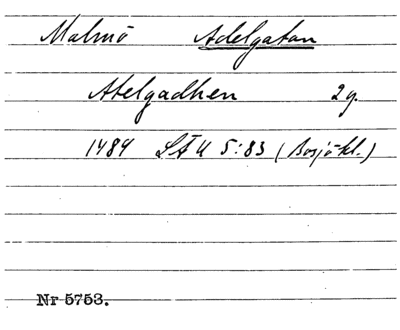 Malmö Adelgatan
Atelgadhen 2 g.
1484 LÄU 5:83 (Bosjökl.)
Nr 5753.